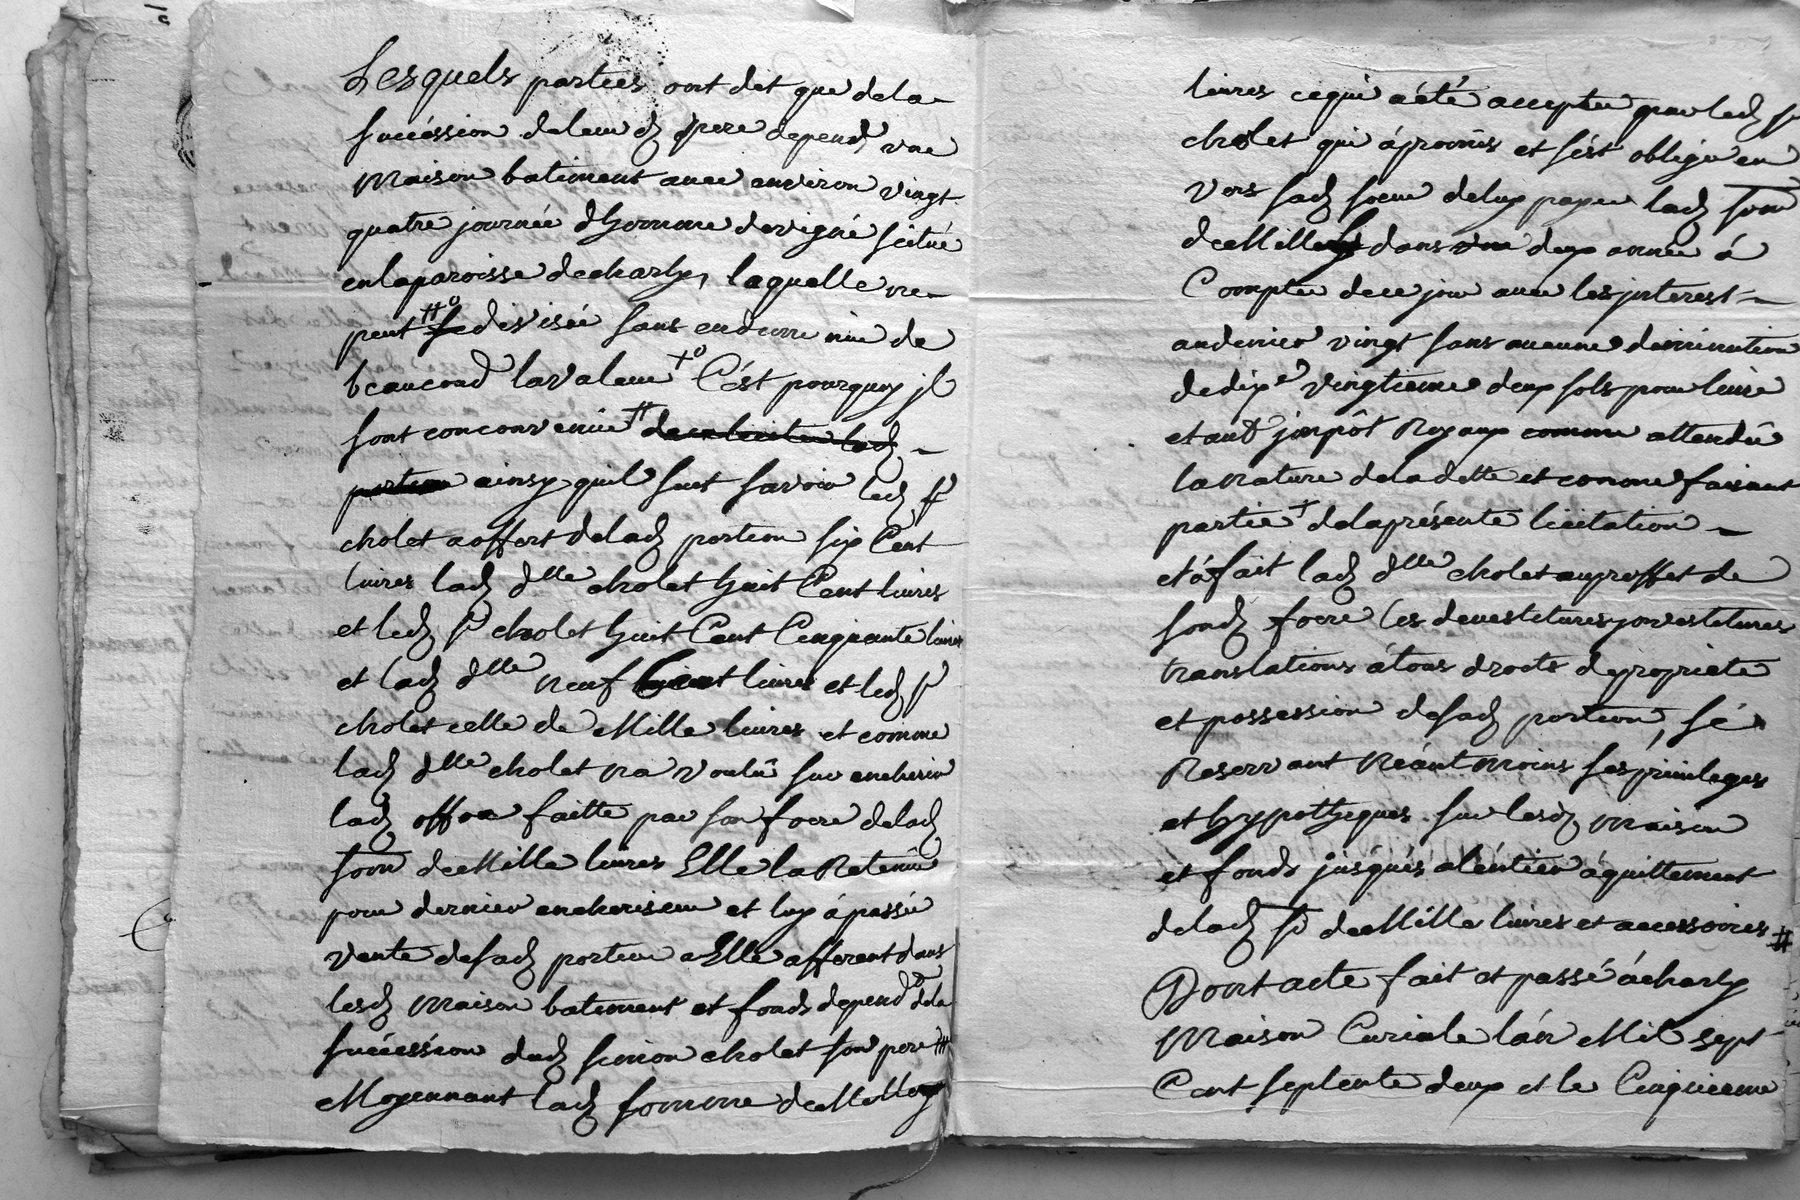 Lesquels parties ont dit que dela
succéssion deleur d. pere depend une
Maison batiment avec environ vingt
quatre journée d'homme devigne scitué
enlaparoisse decharly, laquelle ne
peut devisée sans endiminuée de
beaucoud lavaleur C'est pourquoy jl
sont conconvenue
ainsy quil suit savoir led. Sr
cholet a offert delad. portion six Cent
livres lad. dlle cholet huit Cent livres
et led. Sr cholet huit Cent Cinquante livres
et lad. dlle neuf Cent livres et led. Sr
cholet celle de Mille livres et comme
lad. dlle cholet na voulû sur encherir
lad. offre faitte par son frere delad.
som deMille livres Elle la Retenue
pour dernier encheriseur et luy á passée
vente desad. portion a Elle afferent dans
lesd. Maison batiment et fonds depend. dela
succéssion dud. simon cholet son pere #
Moyennant lad. somme deMille
livres cequi aété accepter par led. Sr
cholet qui ápromis et s'est obligé en
vers sad. soeur deluy payer lad. som
deMille dans deux année á
Compter dece jour avec les jnterest
audenier vingt sans aucune diminution
dedix.e vingtieme deux sols pour livre
et aut. jmpôt Royaux comme attendû
la Nature deladette et comme faisant
partie delaprésente licitation
et áfait lad. dlle cholet auproffet de
sond. frere les devestitures jnvestitures
translations átous droits depropriete
et possession desad. portion, sé
Reservant Néantmoins ses privileges
et hypotheques sur lesd. Maison
et fonds jusqués aléntier áquittement
delad. deMille livres et accessoires #
Dont acte fait et passé ácharly
Maison Curiale l'an Mil sept
Cent septente deux et le Cinquieme